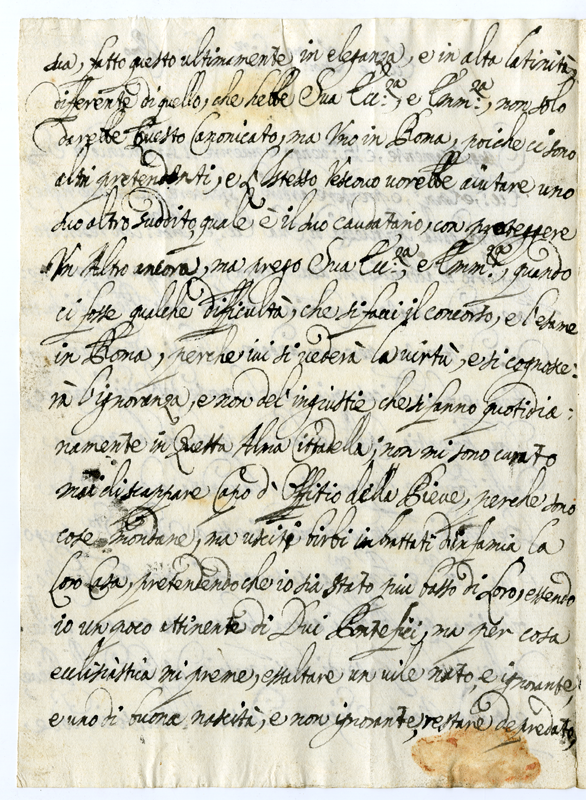 sua, fatto questo ultimamente in eleganza, e in alta latinità
differente di quello, che hebbe Sua Ecc:za, e Emm:za, non solo
darebbe questo Canonicato, ma Uno in Roma, poiche ci sono
altri pretendenti, e l'istesso Vescovo vorebbe aiutare uno
suo altro suddito, quale è il suo caudatario, con proteggere
Un Altro ancora, ma prego Sua Ecc:za, e Emm:za, quando
ci fosse qualche difficultà, che si facci il concorso, e l'esame
in Roma, perche ivi si vederà la virtù, e si cognosce:
rà l'ignoranza, e non del' ingiustie che si fanno quotidia:
namente in Questa Alma Cittadella; non mi sono curato
mai di scappare Capo d' Offitio della Pieve, perche sono
cose mondane, ma usciti birbi imbrattati d'infamia la
Loro Casa, pretendendo che io sia stato piu basso di Loro, essendo
io un poco attinente di Dui Pontefici, ma per cosa
ecclisiastica mi preme, essaltare un vile nato, e ignorante,
e uno di buona nascità, e non ignorante, restare depredato,